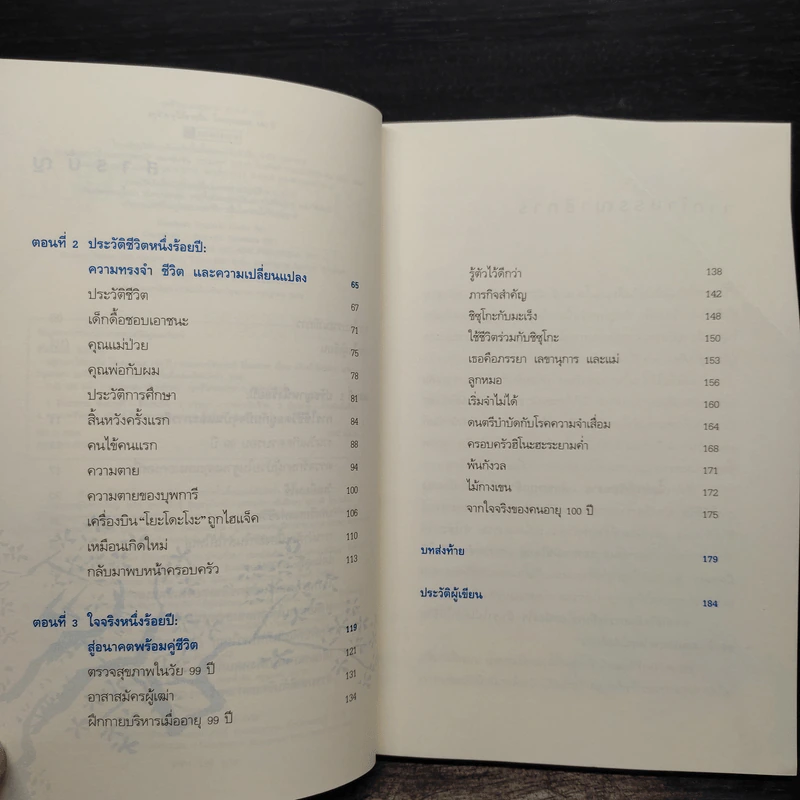 ตอนที่ 2 ประวัติชีวิตหนึ่งร้อยปี:
ความทรงจำ ชีวิต และความเปลี่ยนแปลง 65
ประวัติชีวิต 67
เด็กดื้อชอบเอาชนะ 71
คุณแม่ป่วย 75
คุณพ่อกับผม 78
ประวัติการศึกษา 81
สิ้นหวังครั้งแรก 84
คนไข้คนแรก 88
ความตาย 94
ความตายของบุพการี 100
เครื่องบิน“โยะโดะโงะ”ถูกไฮแจ็ค 106
เหมือนเกิดใหม่ 110
กลับมาพบหน้าครอบครัว 113
ตอนที่ 3 ใจจริงหนึ่งร้อยปี: 119
สู่อนาคตพร้อมคู่ชีวิต 121
ตรวจสุขภาพในวัย 99 ปี 131
อาสาสมัครผู้เฒ่า 134
ฝึกกายบริหารเมื่ออายุ 99 ปี
รู้ตัวไว้ดีกว่า 138
ภารกิจสำคัญ 142
ชิซุโกะกับมะเร็ง 148
ใช้ชีวิตร่วมกับชิซุโกะ 150
เธอคือภรรยา เลขานุการ และแม่ 153
ลูกหมอ 156
เริ่มจำไม่ได้ 160
ดนตรีบำบัดกับโรคความจำเสื่อม 164
ครอบครัวฮิโนะฮะระยามค่ำ 168
พ้นกังวล 171
ไม้กางเขน 172
จากใจจริงของคนอายุ 100 ปี 175
บทส่งท้าย 179
ประวัติผู้เขียน 184